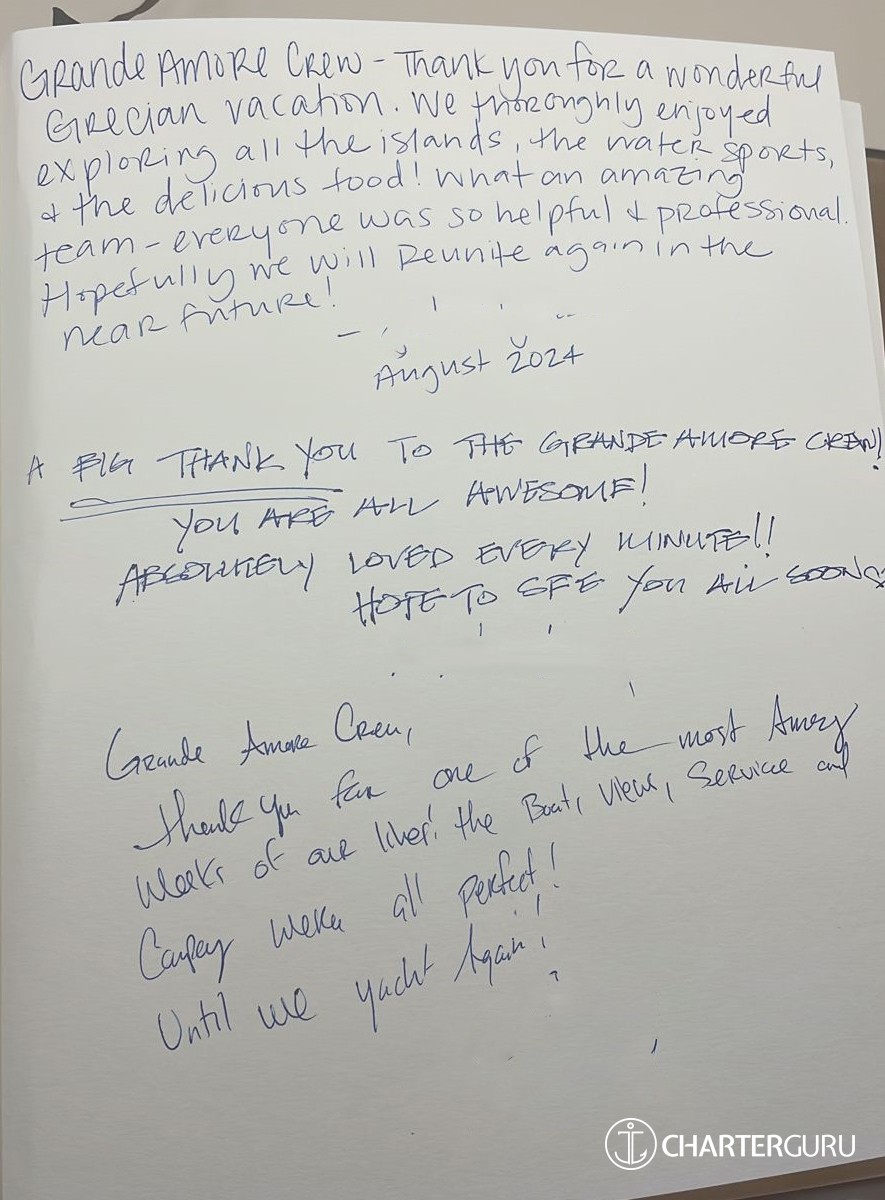 Grande Amore Crew - Thank you for a wonderful
Grecian vacation. We thoroughly enjoyed
exploring all the islands, the water sports,
& the delicious food! What an amazing
team - everyone was so helpful & professional.
Hopefully we will Reunite again in the
near future!
August 2024
A BIG THANK YOU TO THE GRANDE AMORE CREW!
YOU ARE ALL AWESOME!
ABSOLUTELY LOVED EVERY MINUTE!!
HOPE TO SEE YOU ALL SOON
Grande Amore Crew,
Thank you for one of the most
Weeks of our lives! the Boat, View, Service and
were all perfect!
Until we yacht Again!
CHARTERGURU